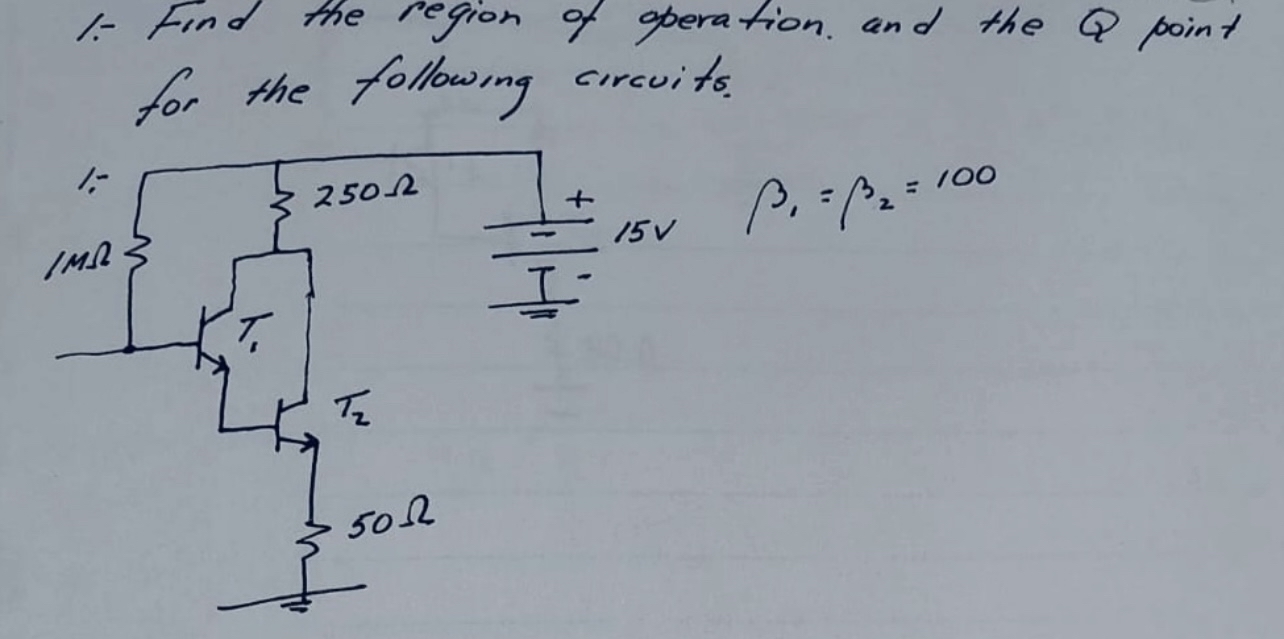 1.- Find the region of operation. and the Q point
for the following circuits.
1.-
250Ω
β₁ = β₂ = 100
+
15V
-
1MΩ
T₁
T₂
50Ω